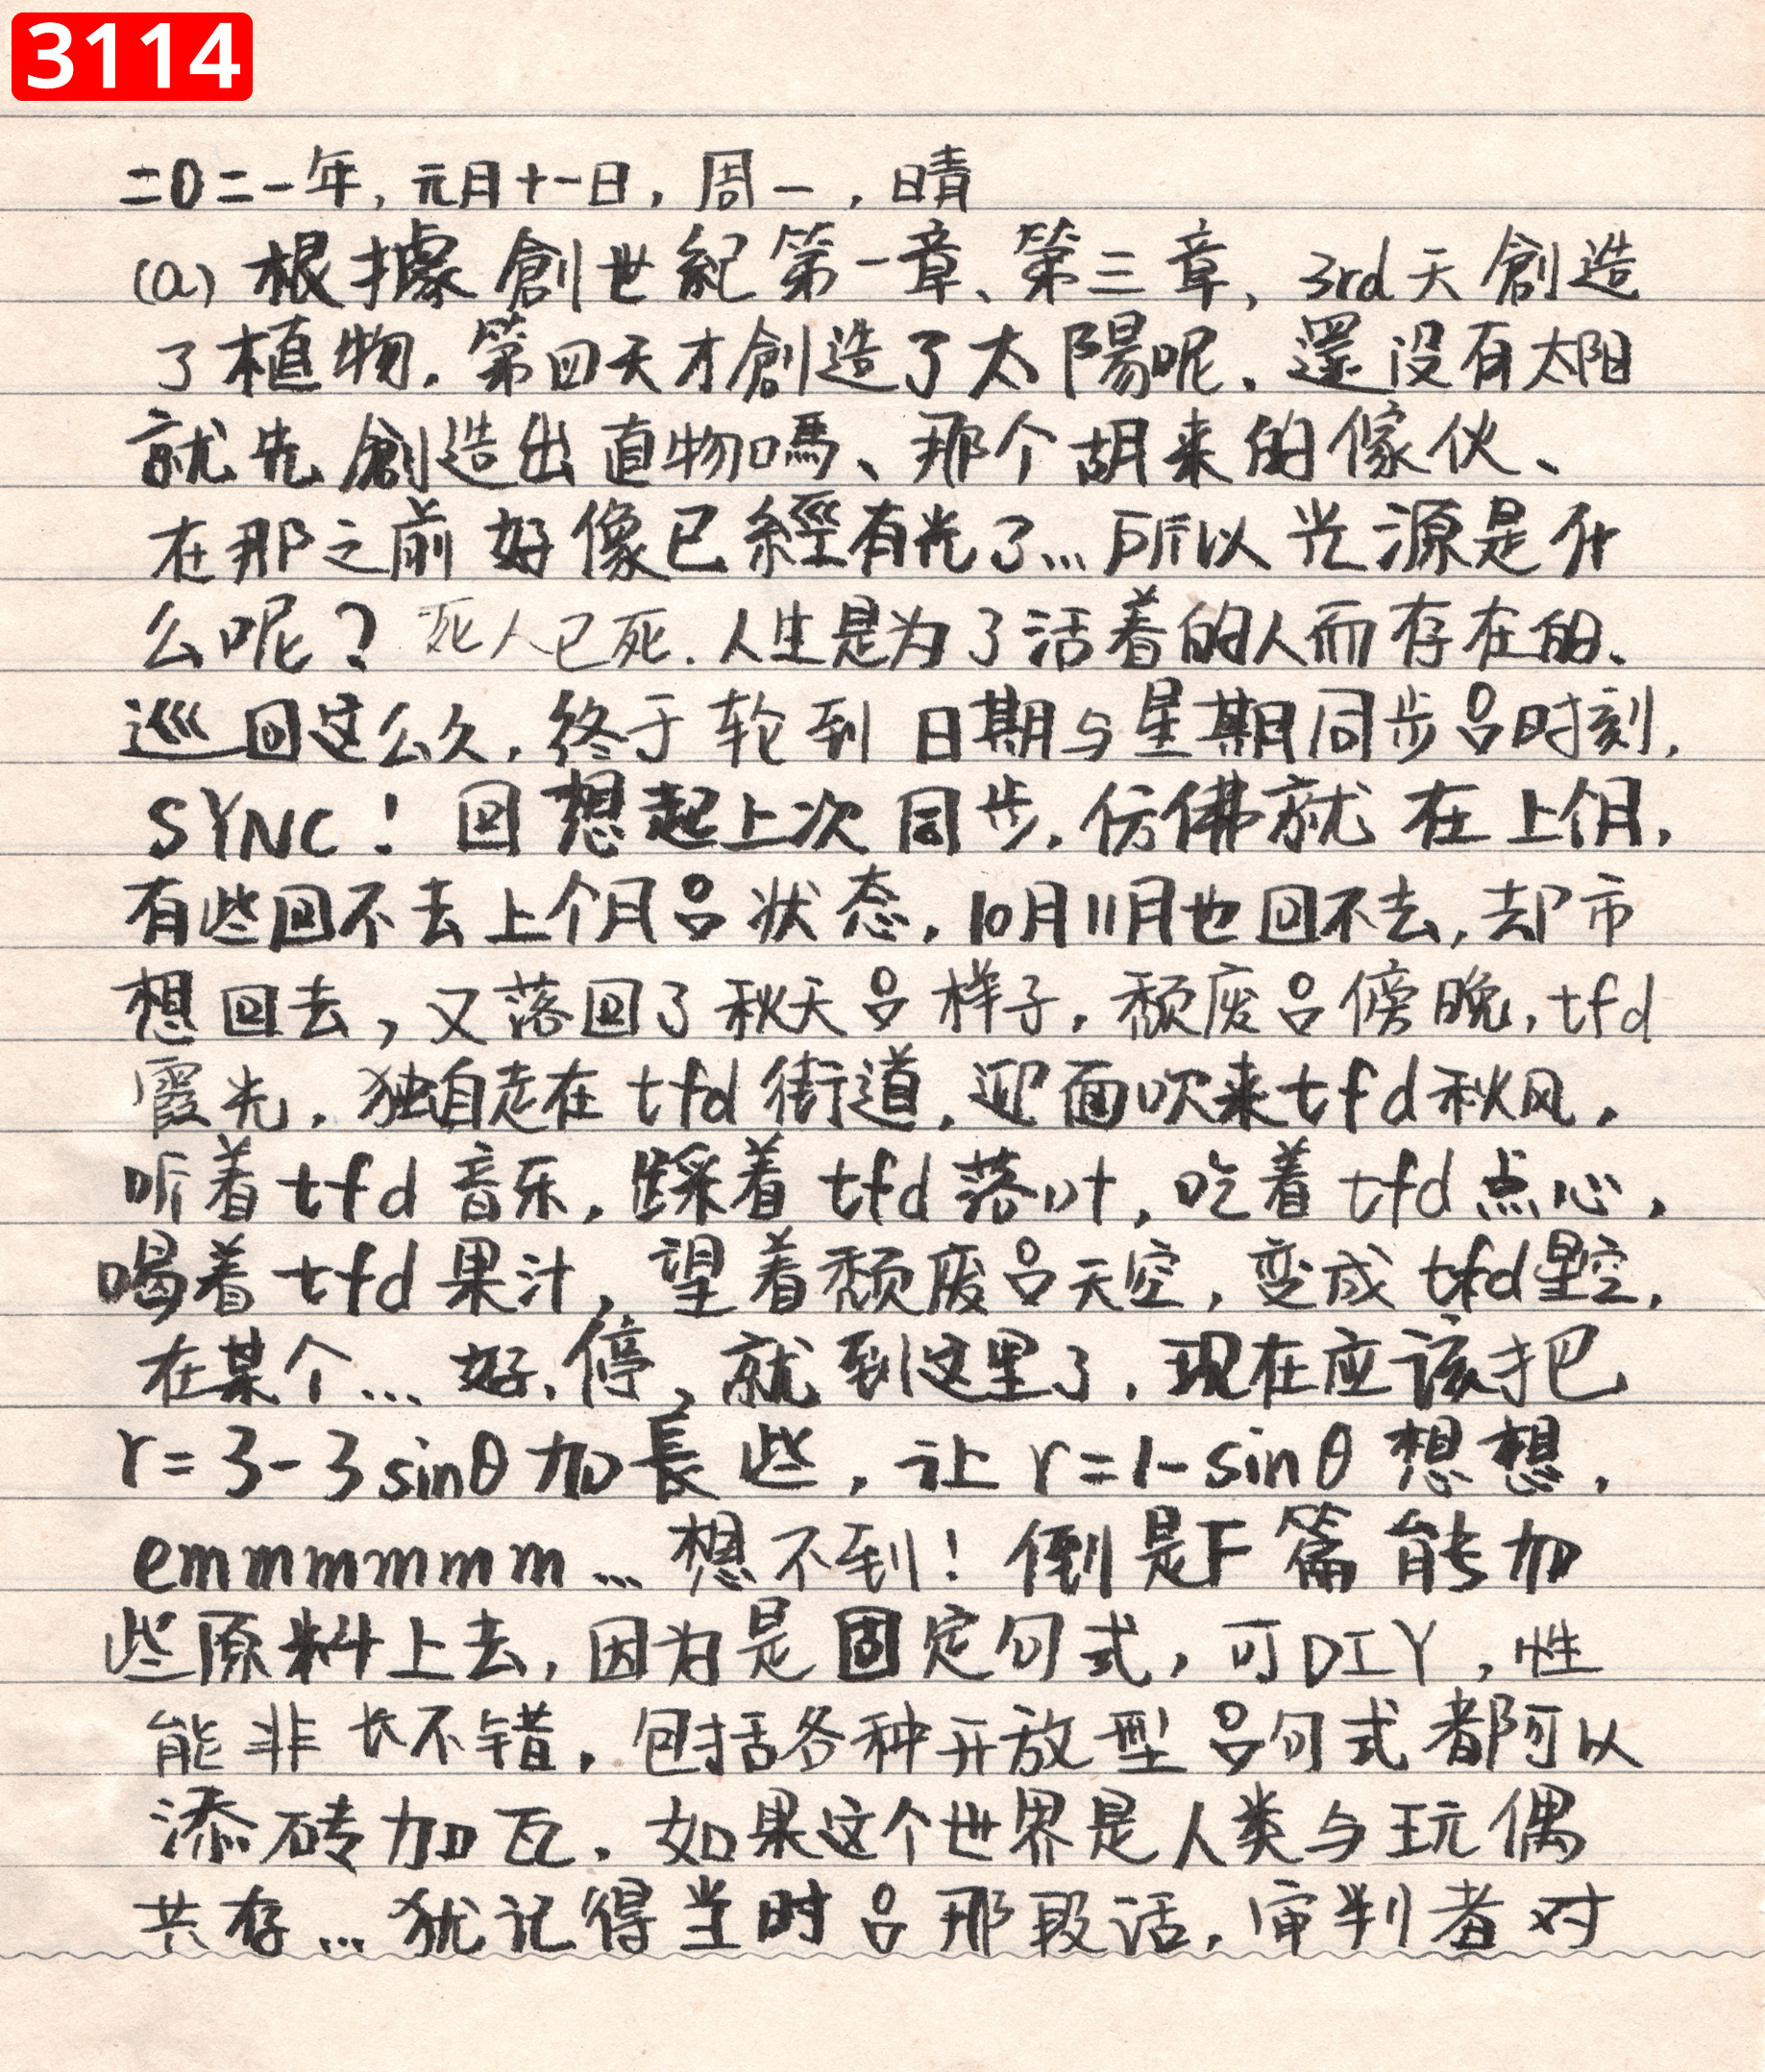 3114
二〇二一年, 元月十一日, 周一, 晴
(a) 根據創世紀第一章、第三章, 3rd天創造
了植物. 第四天才創造了太陽呢. 還没有太阳
就先創造出直物嗎、那个胡来的傢伙、
在那之前好像已經有光了… 所以光源是什
么呢? 死人已死. 人生是为了活着的人而存在的、
巡回这么久, 终于轮到日期与星期同步吕时刻,
SYNC! 回想起上次同步, 仿佛就在上个月,
有些回不去上个月吕状态, 10月11月也回不去, 却市
想回去, 又落回了秋天吕样子, 颓废吕傍晚, tfd
霞光, 独自走在tfd街道, 迎面吹来tfd秋风,
听着tfd音乐, 踩着tfd落叶, 吃着tfd点心,
喝着tfd果汁, 望着颓废吕天空, 变成tfd星空,
在某个… 好, 停, 就到这里了, 现在应该把
r=3-3sinθ加長些, 让r=1-sinθ想想,
emmmmmm… 想不到! 倒是F篇能加
些原料上去, 因为是固定句式, 可DIY, 性
能非长不错, 包括各种开放型吕句式都阿以
添砖加瓦. 如果这个世界是人类与玩偶
共存… 犹记得当时吕那段话, 审判者对